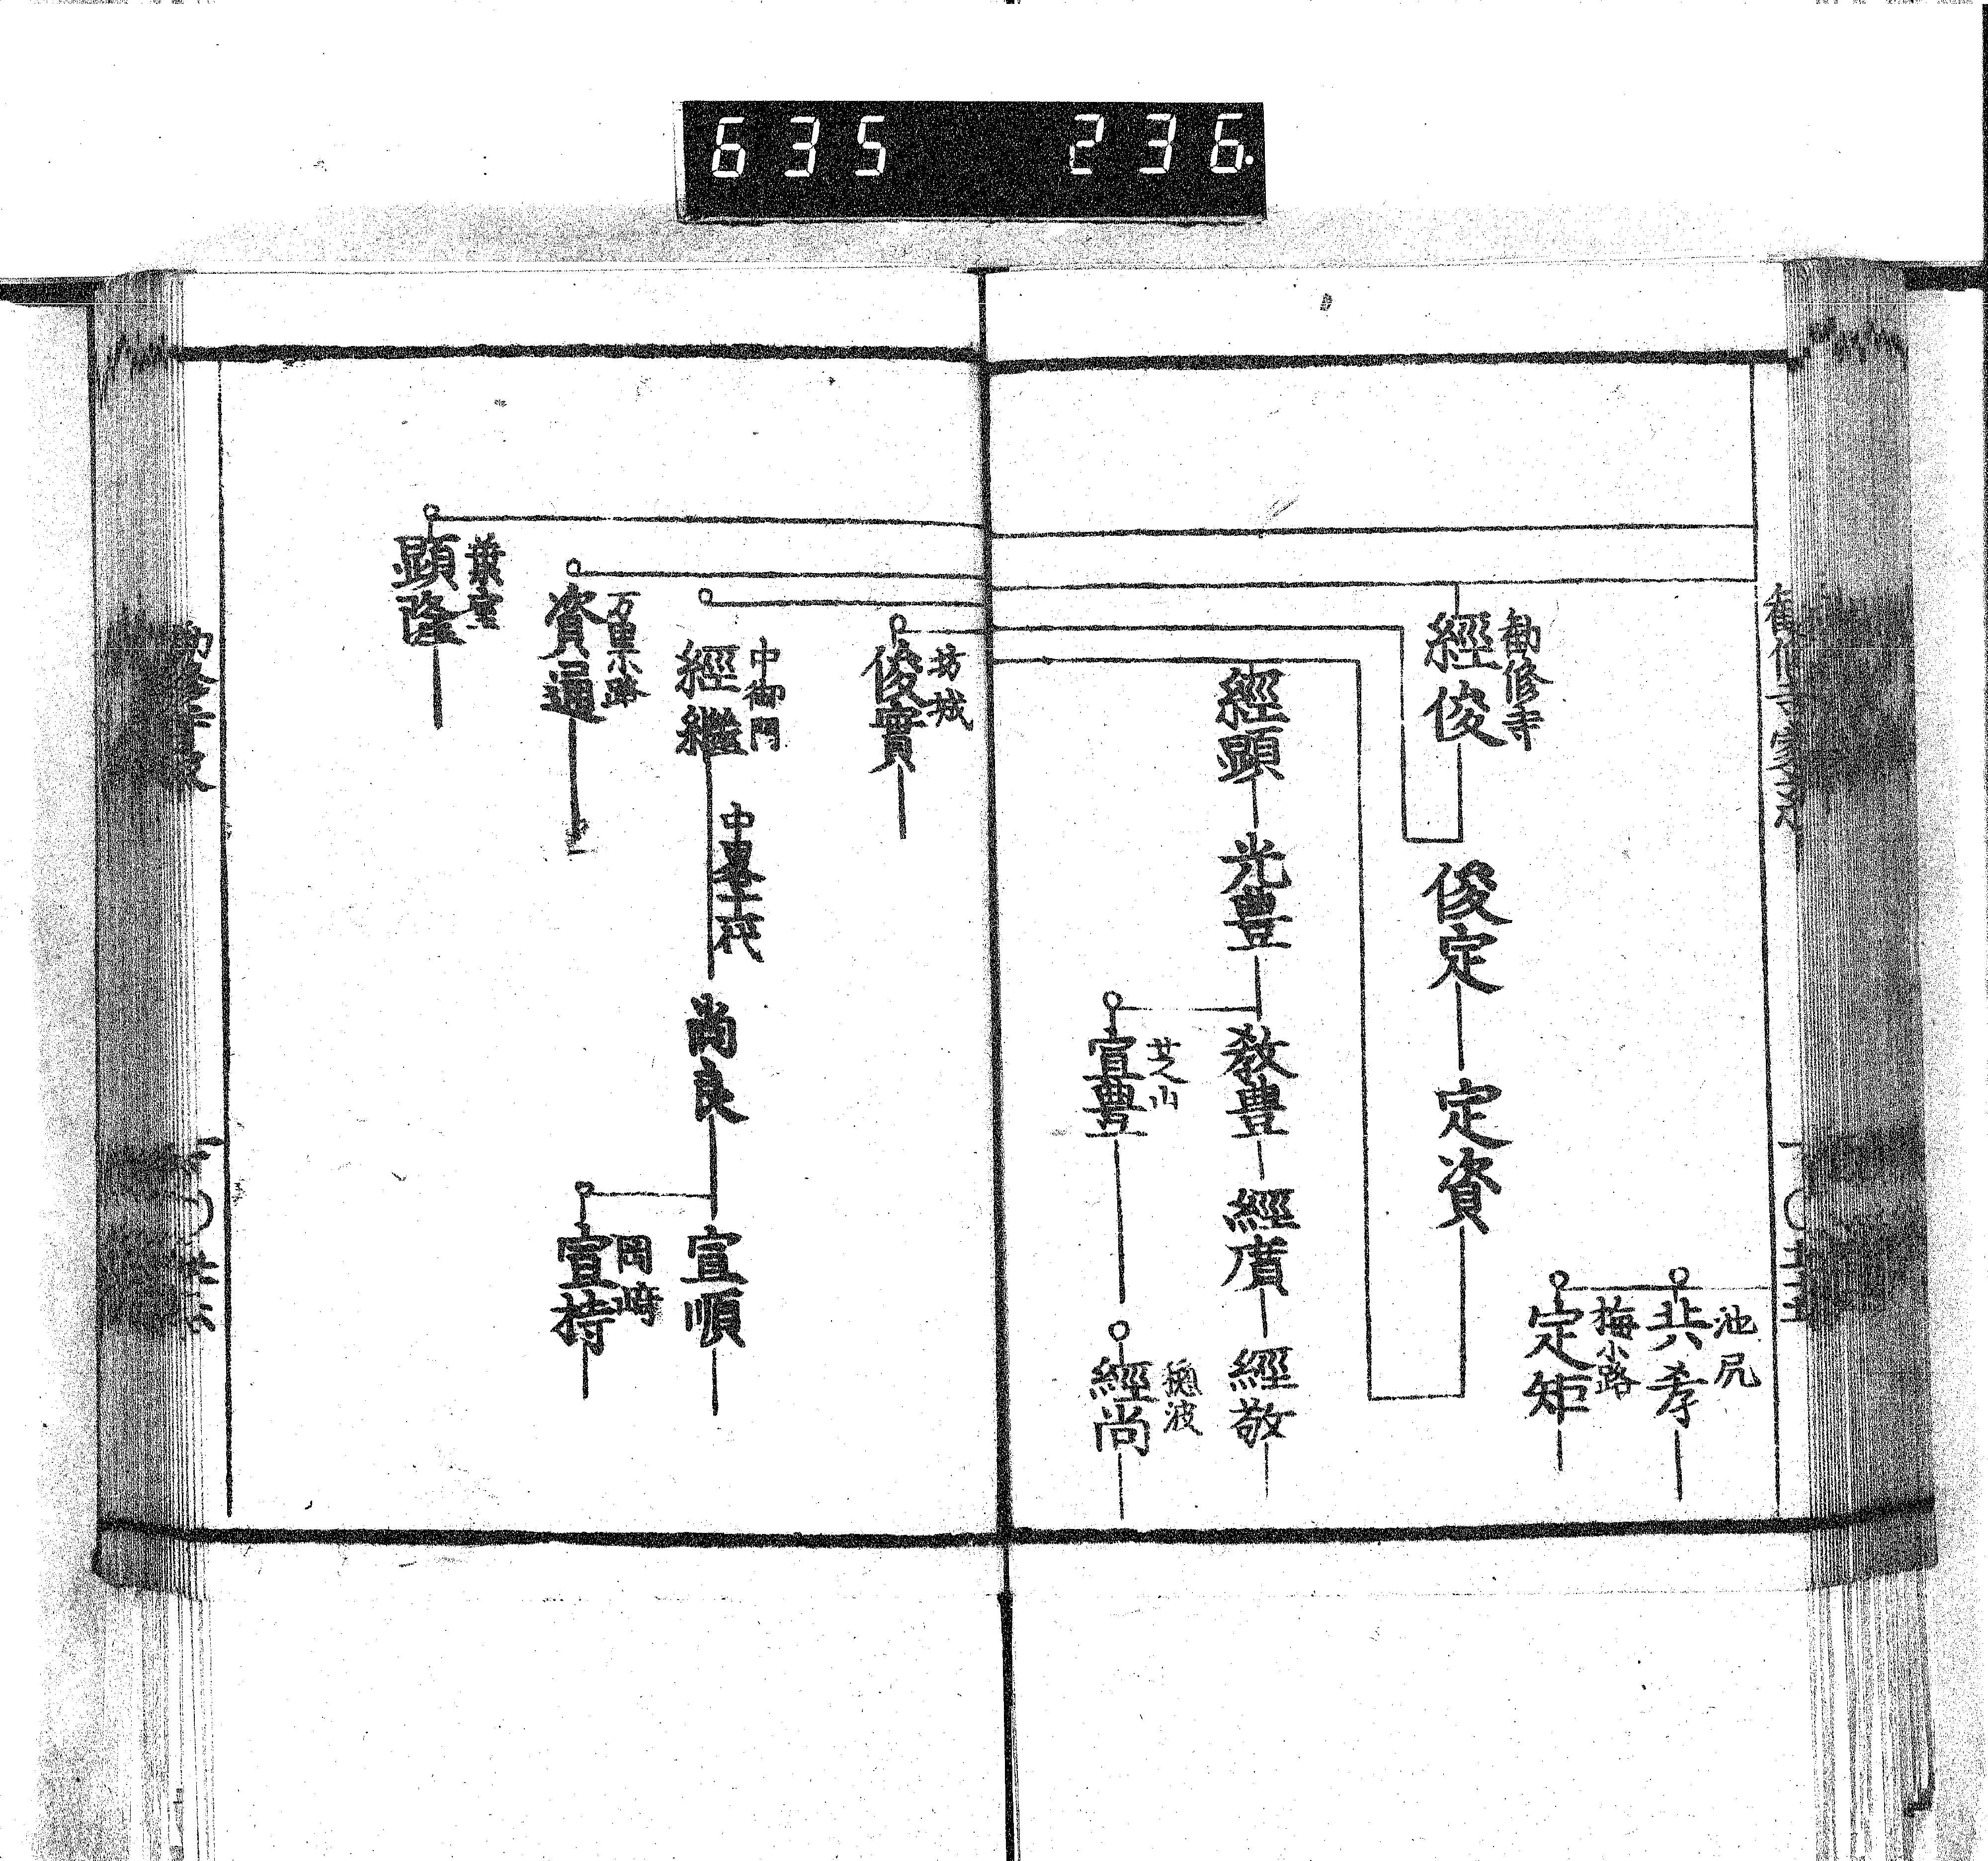 635 236.
池尻
共孝
梅小路
定矩
勧修寺
經俊
俊定
定資
經顕
光豊
教豊
經廣
經敬
芝山
宣豊
穂波
經尚
坊城
俊實
中御門
經繼
中畧十代
尚良
宣順
岡崎
宣持
万里小路
資通
葉室
顕隆